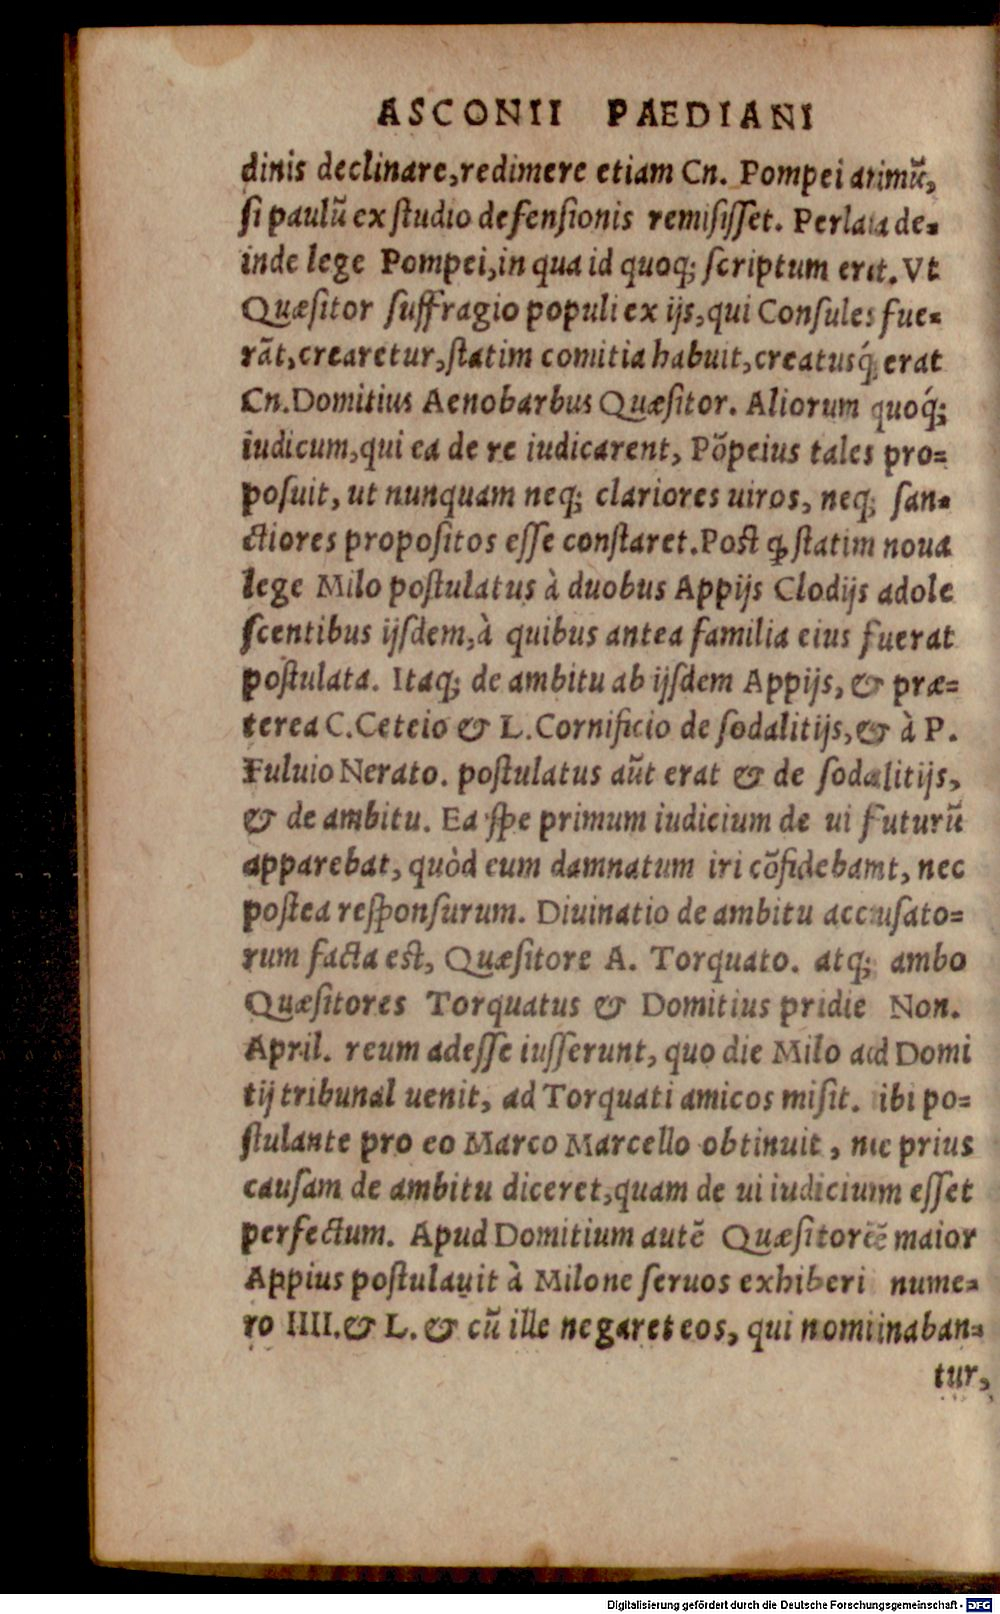 ASCONII PAEDIANI
dinis declinare, redimere etiam Cn. Pompei animũ,
si paulũ ex studio defensionis remisisset. Perlata de=
inde lege Pompei, in qua id quoq; scriptum erat. Vt
Quæsitor suffragio populi ex ijs, qui Consules fue=
rãt, crearetur, statim comitia habuit, creatusq́; erat
Cn. Domitius Aenobarbus Quæsitor. Aliorum quoq́;
iudicum, qui ea de re iudicarent, Põpeius tales pro=
posuit, ut nunquam neq; clariores uiros, neq; san=
ctiores propositos esse constaret. Post ꝙ statim noua
lege Milo postulatus à duobus Appijs Clodijs adole
scentibus ijsdem, à quibus antea familia eius fuerat
postulata. Itaq; de ambitu ab ijsdem Appijs, & præ=
terea C. Ceteio & L. Cornificio de sodalitijs, & à P.
Fuluio Nerato. postulatus aũt erat & de sodalitijs,
& de ambitu. Ea spe primum iudicium de ui futurũ
apparebat, quòd eum damnatum iri cõfidebamt, nec
postea responsurum. Diuinatio de ambitu accusato=
rum facta est, Quæsitore A. Torquato. atq; ambo
Quæsitores Torquatus & Domitius pridie Non.
April. reum adesse iusserunt, quo die Milo ad Domi
tij tribunal uenit, ad Torquati amicos misit. ibi po=
stulante pro eo Marco Marcello obtinuit, ne prius
causam de ambitu diceret, quam de ui iudicium esset
perfectum. Apud Domitium autẽ Quæsitorẽ maior
Appius postulauit à Milone seruos exhiberi nume=
ro IIII. & L. & cũ ille negaret eos, qui nominaban=
tur,
Digitalisierung gefördert durch die Deutsche Forschungsgemeinschaft - DFG